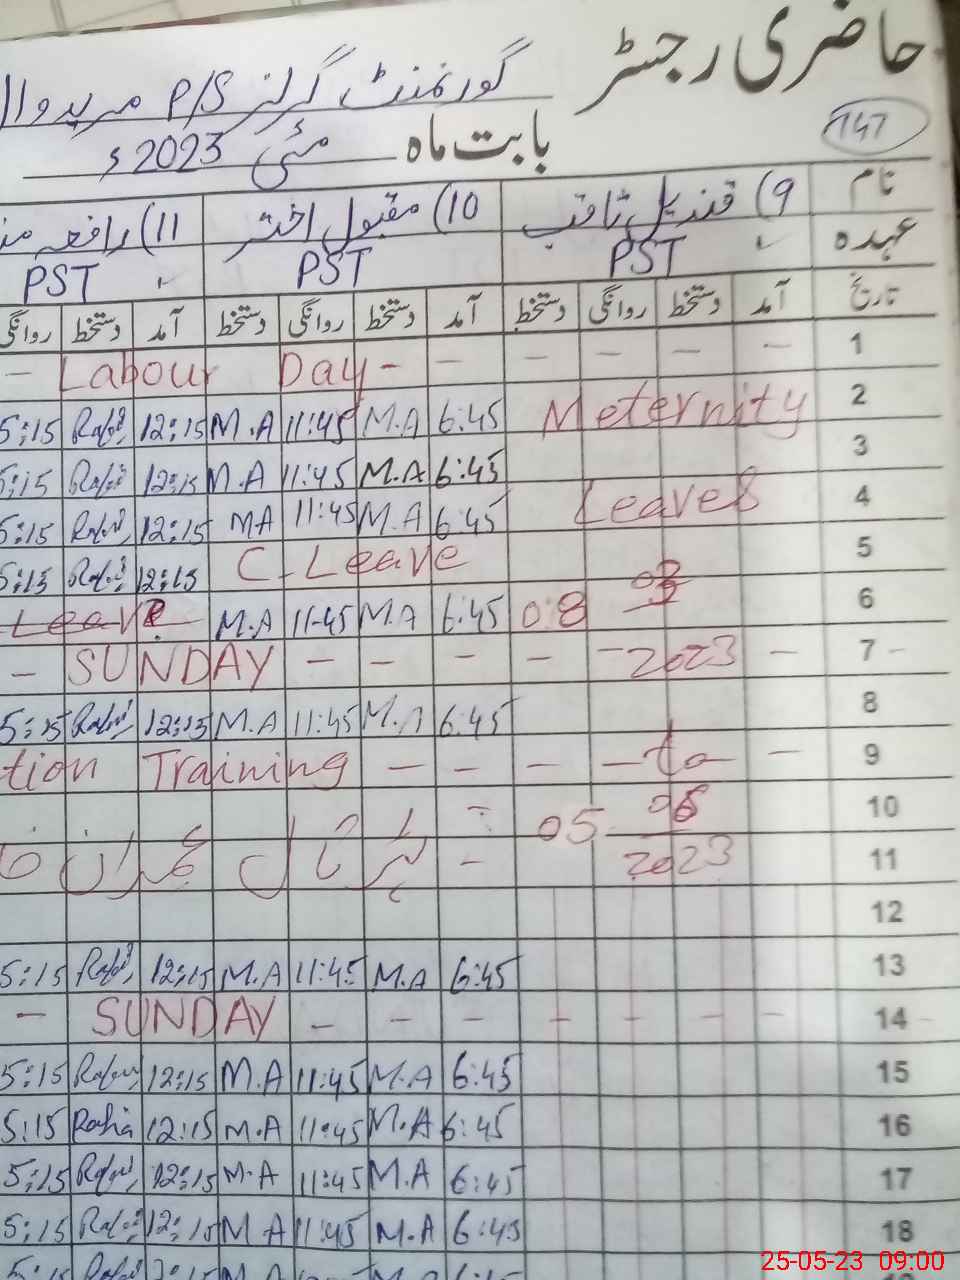 حاضری رجسٹر
گورنمنٹ گرلز P/S مریدوال
147
بابت ماہ مئی 2023ء
نام 9) قندیل ثاقب 10) مقبول اختر 11) رافعہ
عہدہ PST PST PST
تاریخ آمد دستخط روانگی دستخط آمد دستخط روانگی دستخط آمد دستخط روانگی
1 - - - - - - Labour Day - -
2 Meternity 6:45 M.A 11:45 M.A 12:15 5:15
3 6:45 M.A 11:45 M.A 12:15 5:15
4 Leaves 6:45 M.A 11:45 MA 12:15 5:15
5 C-Leave 12:15 5:15
6 08 03 6:45 M.A 11:45 M.A Leave
7 - - 2023 - - - - - SUNDAY -
8 6:45 M.A 11:45 M.A 12:15 5:15
9 - to - - - - tion Training
10 05 06
11 2023 - ہڑتال عمران
12
13 6:45 M.A 11:45 M.A 12:15 5:15
14 - - - - - - - - SUNDAY -
15 6:45 M.A 11:45 M.A 12:15 5:15
16 6:45 M.A 11:45 M.A 12:15 Rafia 5:15
17 6:45 M.A 11:45 M.A 12:15 5:15
18 6:45 M.A 11:45 M.A 12:15 5:15
25-05-23 09:00